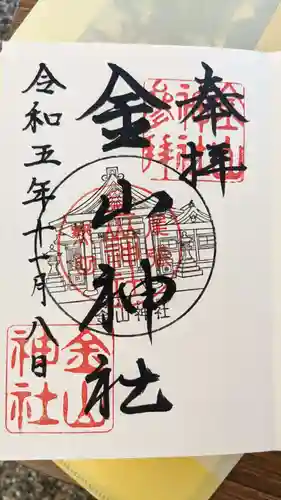 奉拝
金山神社
令和五年十一月八日
金山神社
参拝
金山神社
金山神社